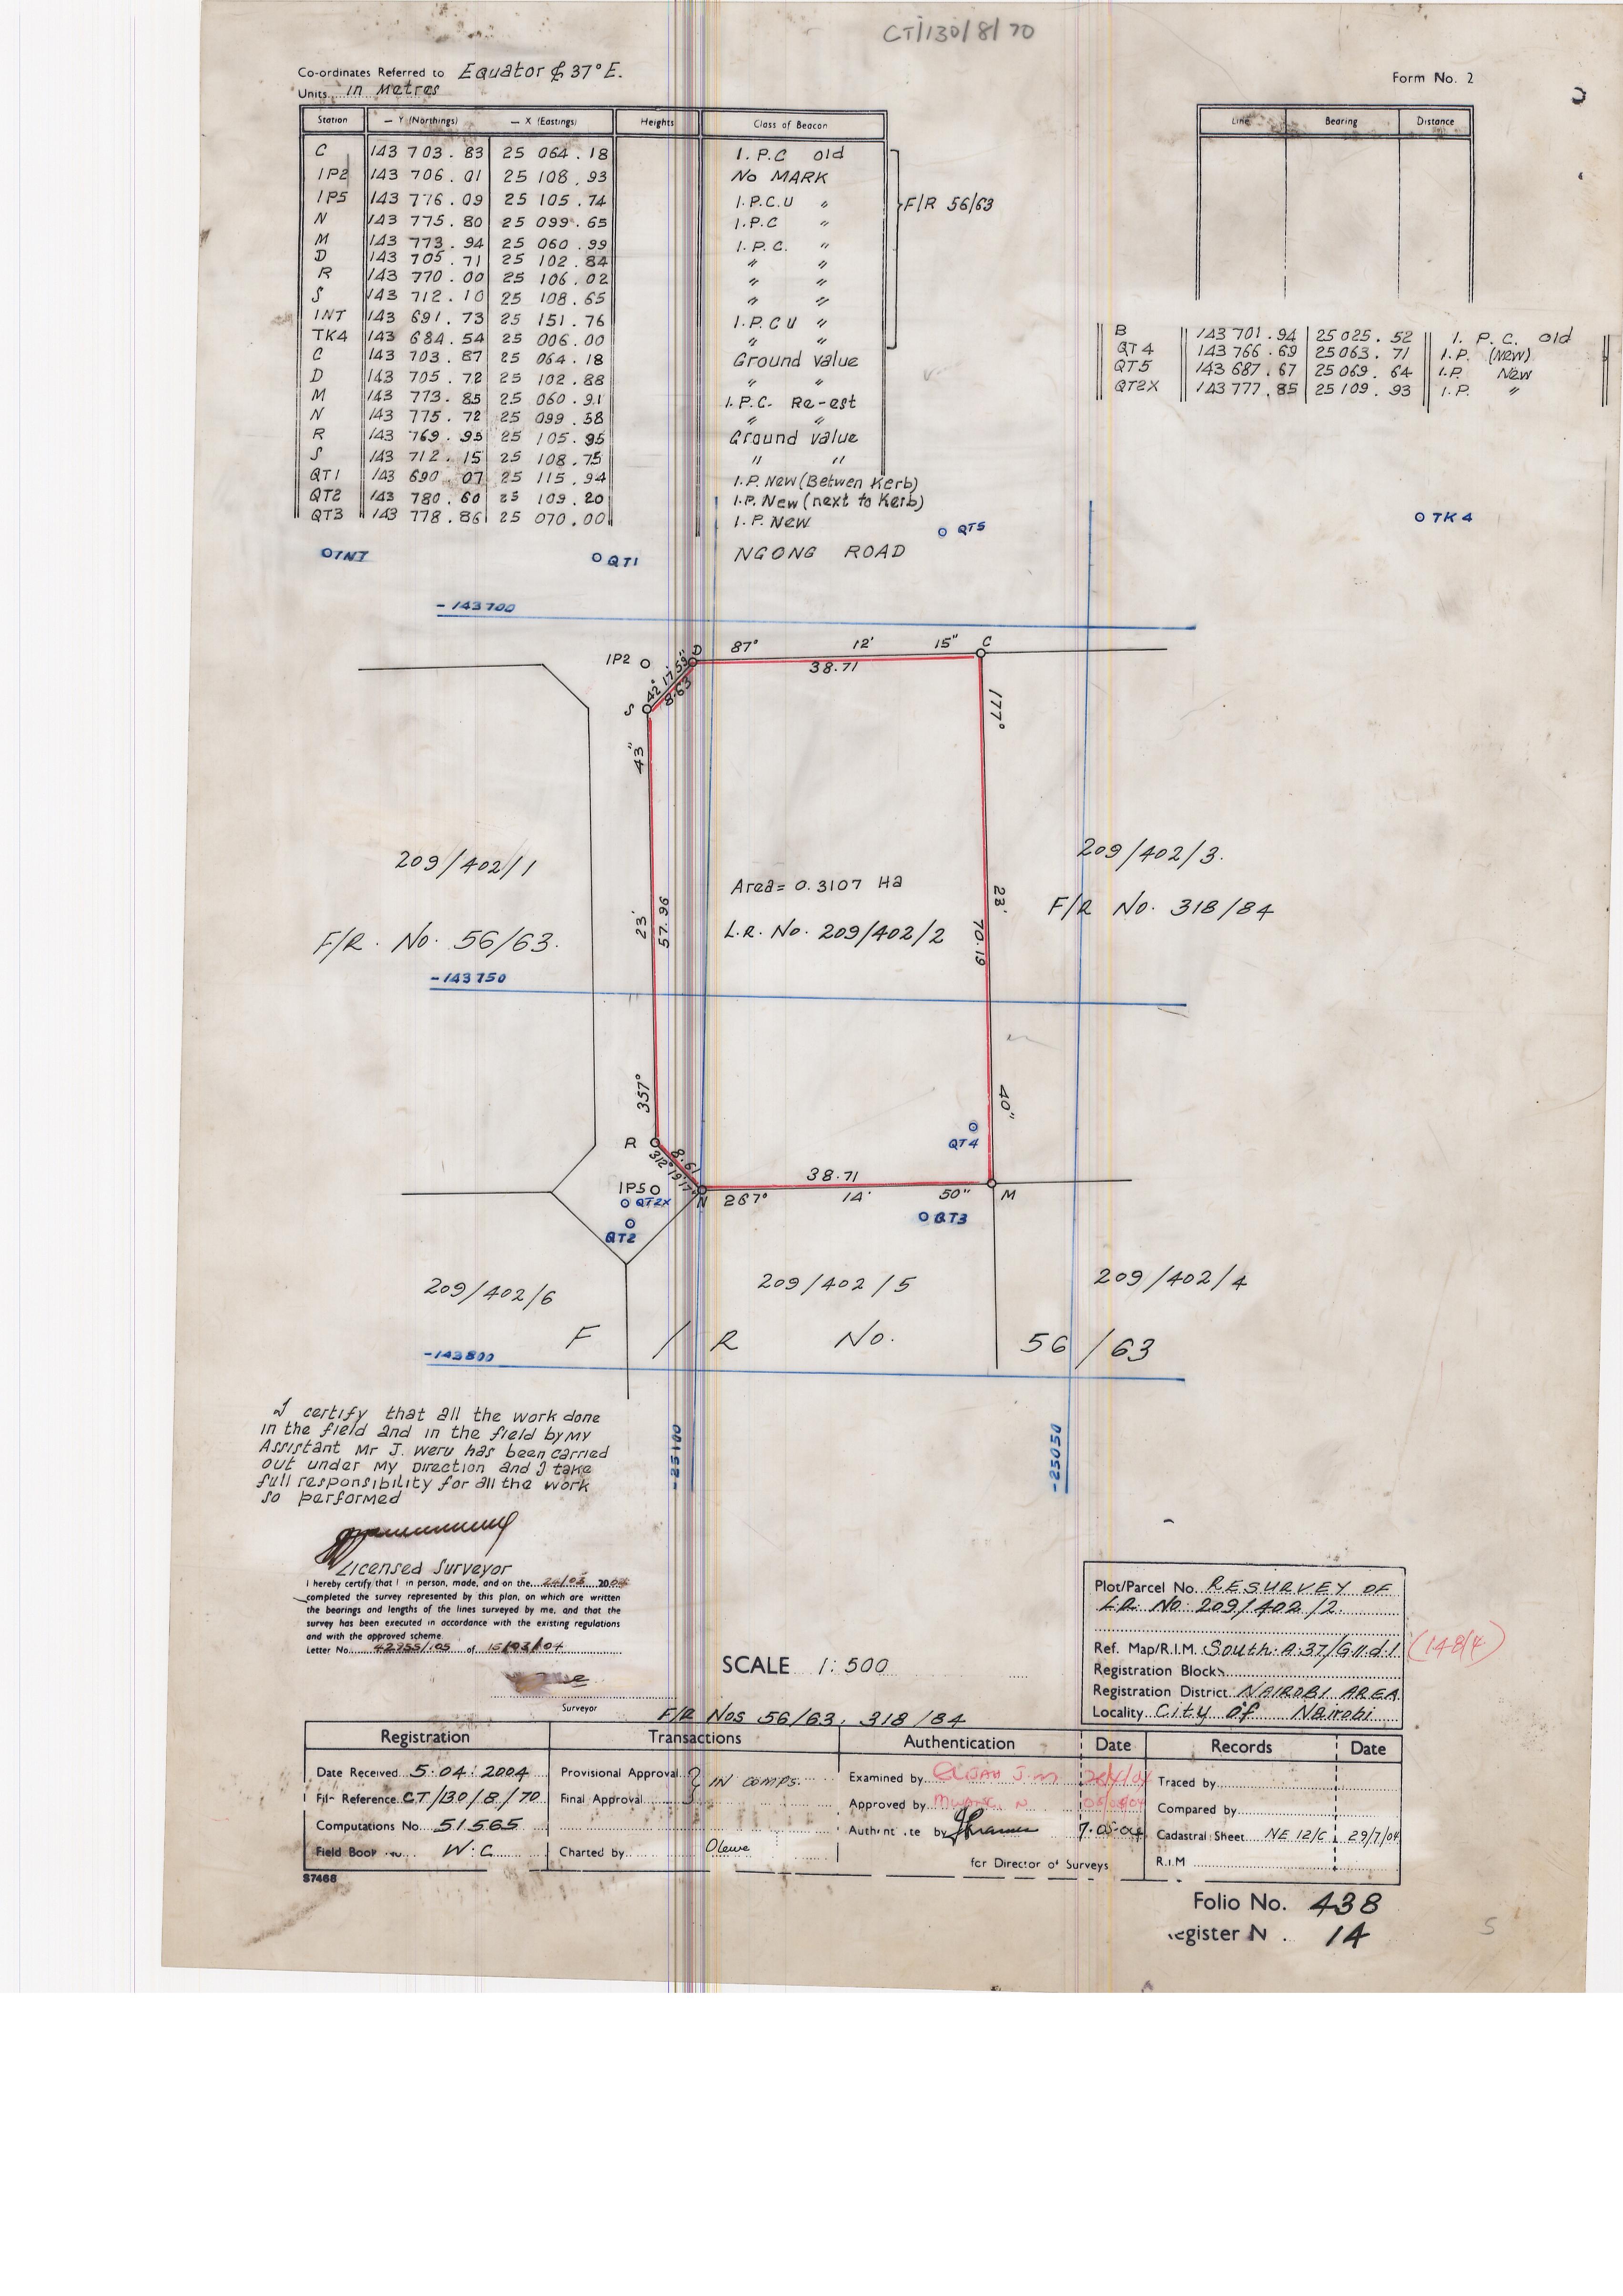 CT/130/8/70
Co-ordinates Referred to Equator & 37° E.
Units in Metres
Form No. 2
Station — Y (Northings) — X (Eastings) Heights Class of Beacon
C 143 703.83 25 064.18 I.P.C old
IP2 143 706.01 25 108.93 No MARK
IP5 143 776.09 25 105.74 I.P.C.U "
N 143 775.80 25 099.65 I.P.C "
M 143 773.94 25 060.99 I.P.C. "
D 143 705.71 25 102.84 " "
R 143 770.00 25 106.02 " "
S 143 712.10 25 108.65 " "
INT 143 691.73 25 151.76 I.P.C U "
TK4 143 684.54 25 006.00 " "
F/R 56/63
C 143 703.87 25 064.18 Ground value
D 143 705.72 25 102.88 " "
M 143 773.85 25 060.91 I.P.C. Re-est
N 143 775.72 25 099.58 " "
R 143 769.95 25 105.95 Ground value
S 143 712.15 25 108.75 " "
QT1 143 690.07 25 115.94 I.P. New (Betwen Kerb)
QT2 143 780.60 25 109.20 I.P. New (next to Kerb)
QT3 143 778.86 25 070.00 I.P. New
Line Bearing Distance
B 143 701.94 25 025.52 I.P.C. old
QT4 143 766.69 25 063.71 I.P. (New)
QT5 143 687.67 25 069.64 I.P. New
QT2X 143 777.85 25 109.93 I.P. "
INT QT1 NGONG ROAD QT5 TK4
- 143700
IP2 D 87° 12' 15" C
38.71
42° 17' 59"
8.63
S
177° 23' 40"
70.19
43"
23'
357°
57.96
209/402/1
F/R. No. 56/63.
Area = 0.3107 Ha
L.R. No. 209/402/2
209/402/3.
F/R No. 318/84
- 143750
R
8.61
312° 19' 17"
QT4
IP5
QT2X
QT2
N 267° 14' 50" M
38.71
QT3
209/402/6
209/402/5
209/402/4
F / R No. 56/63
- 143800
- 25100
- 25050
I certify that all the work done
in the field and in the field by My
Assistant Mr J. Weru has been carried
out under My Direction and I take
full responsibility for all the work
so performed
Licensed Surveyor
I hereby certify that I in person, made, and on the 20
completed the survey represented by this plan, on which are written
the bearings and lengths of the lines surveyed by me, and that the
survey has been executed in accordance with the existing regulations
and with the approved scheme.
Letter No. 42955/.05 of 15/03/04
Surveyor
SCALE 1:500
F/R Nos 56/63, 318/84
Plot/Parcel No. RESURVEY OF
L.R. No. 209/402/2
Ref. Map/R.I.M. South A.37/G.II.d.1 (148/4)
Registration Block
Registration District NAIROBI AREA
Locality City of Nairobi
Registration
Date Received 5.04.2004
File Reference CT/130/8/70
Computations No. 51565
Field Book No. W.C
S7468
Transactions
Provisional Approval
Final Approval
IN COMPS.
Charted by Olewe
Authentication Date
Examined by
Approved by
Authent te by 7.05.04
for Director of Surveys
Records Date
Traced by
Compared by
Cadastral Sheet NE 12/C 29/7/04
R.I.M
Folio No. 438
egister N . 14
5